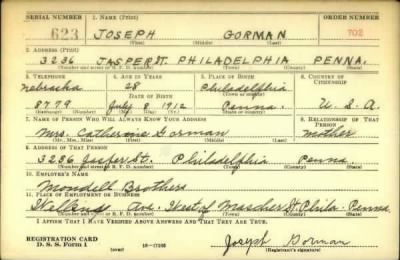 SERIAL NUMBER 1. NAME (Print) ORDER NUMBER
623 JOSEPH GORMAN 702
(First) (Middle) (Last)
2. ADDRESS (Print)
3236 JASPER ST. PHILADELPHIA PENNA.
(Number and street or R. F. D. number) (Town) (County) (State)
3. TELEPHONE 4. AGE IN YEARS 5. PLACE OF BIRTH 6. COUNTRY OF CITIZENSHIP
Nebraska 28 Philadelphia
DATE OF BIRTH
8779 July 8 1912 Penna. U.S.A.
(Exchange) (Number) (Mo.) (Day) (Yr.) (State or country)
7. NAME OF PERSON WHO WILL ALWAYS KNOW YOUR ADDRESS 8. RELATIONSHIP OF THAT PERSON
Mrs. Catherine Gorman mother
(Mr., Mrs., Miss) (First) (Middle) (Last)
9. ADDRESS OF THAT PERSON
3236 Jasper St. Philadelphia Penna
(Number and street or R. F. D. number) (Town) (County) (State)
10. EMPLOYER'S NAME
Brothers
11. PLACE OF EMPLOYMENT OR BUSINESS
Ave. West of Mascher St. Phila. Penna.
(Number and street or R. F. D. number) (Town) (County) (State)
I AFFIRM THAT I HAVE VERIFIED ABOVE ANSWERS AND THAT THEY ARE TRUE.
REGISTRATION CARD
D. S. S. Form 1 (over) 16—17105 Joseph Gorman
(Registrant's signature)